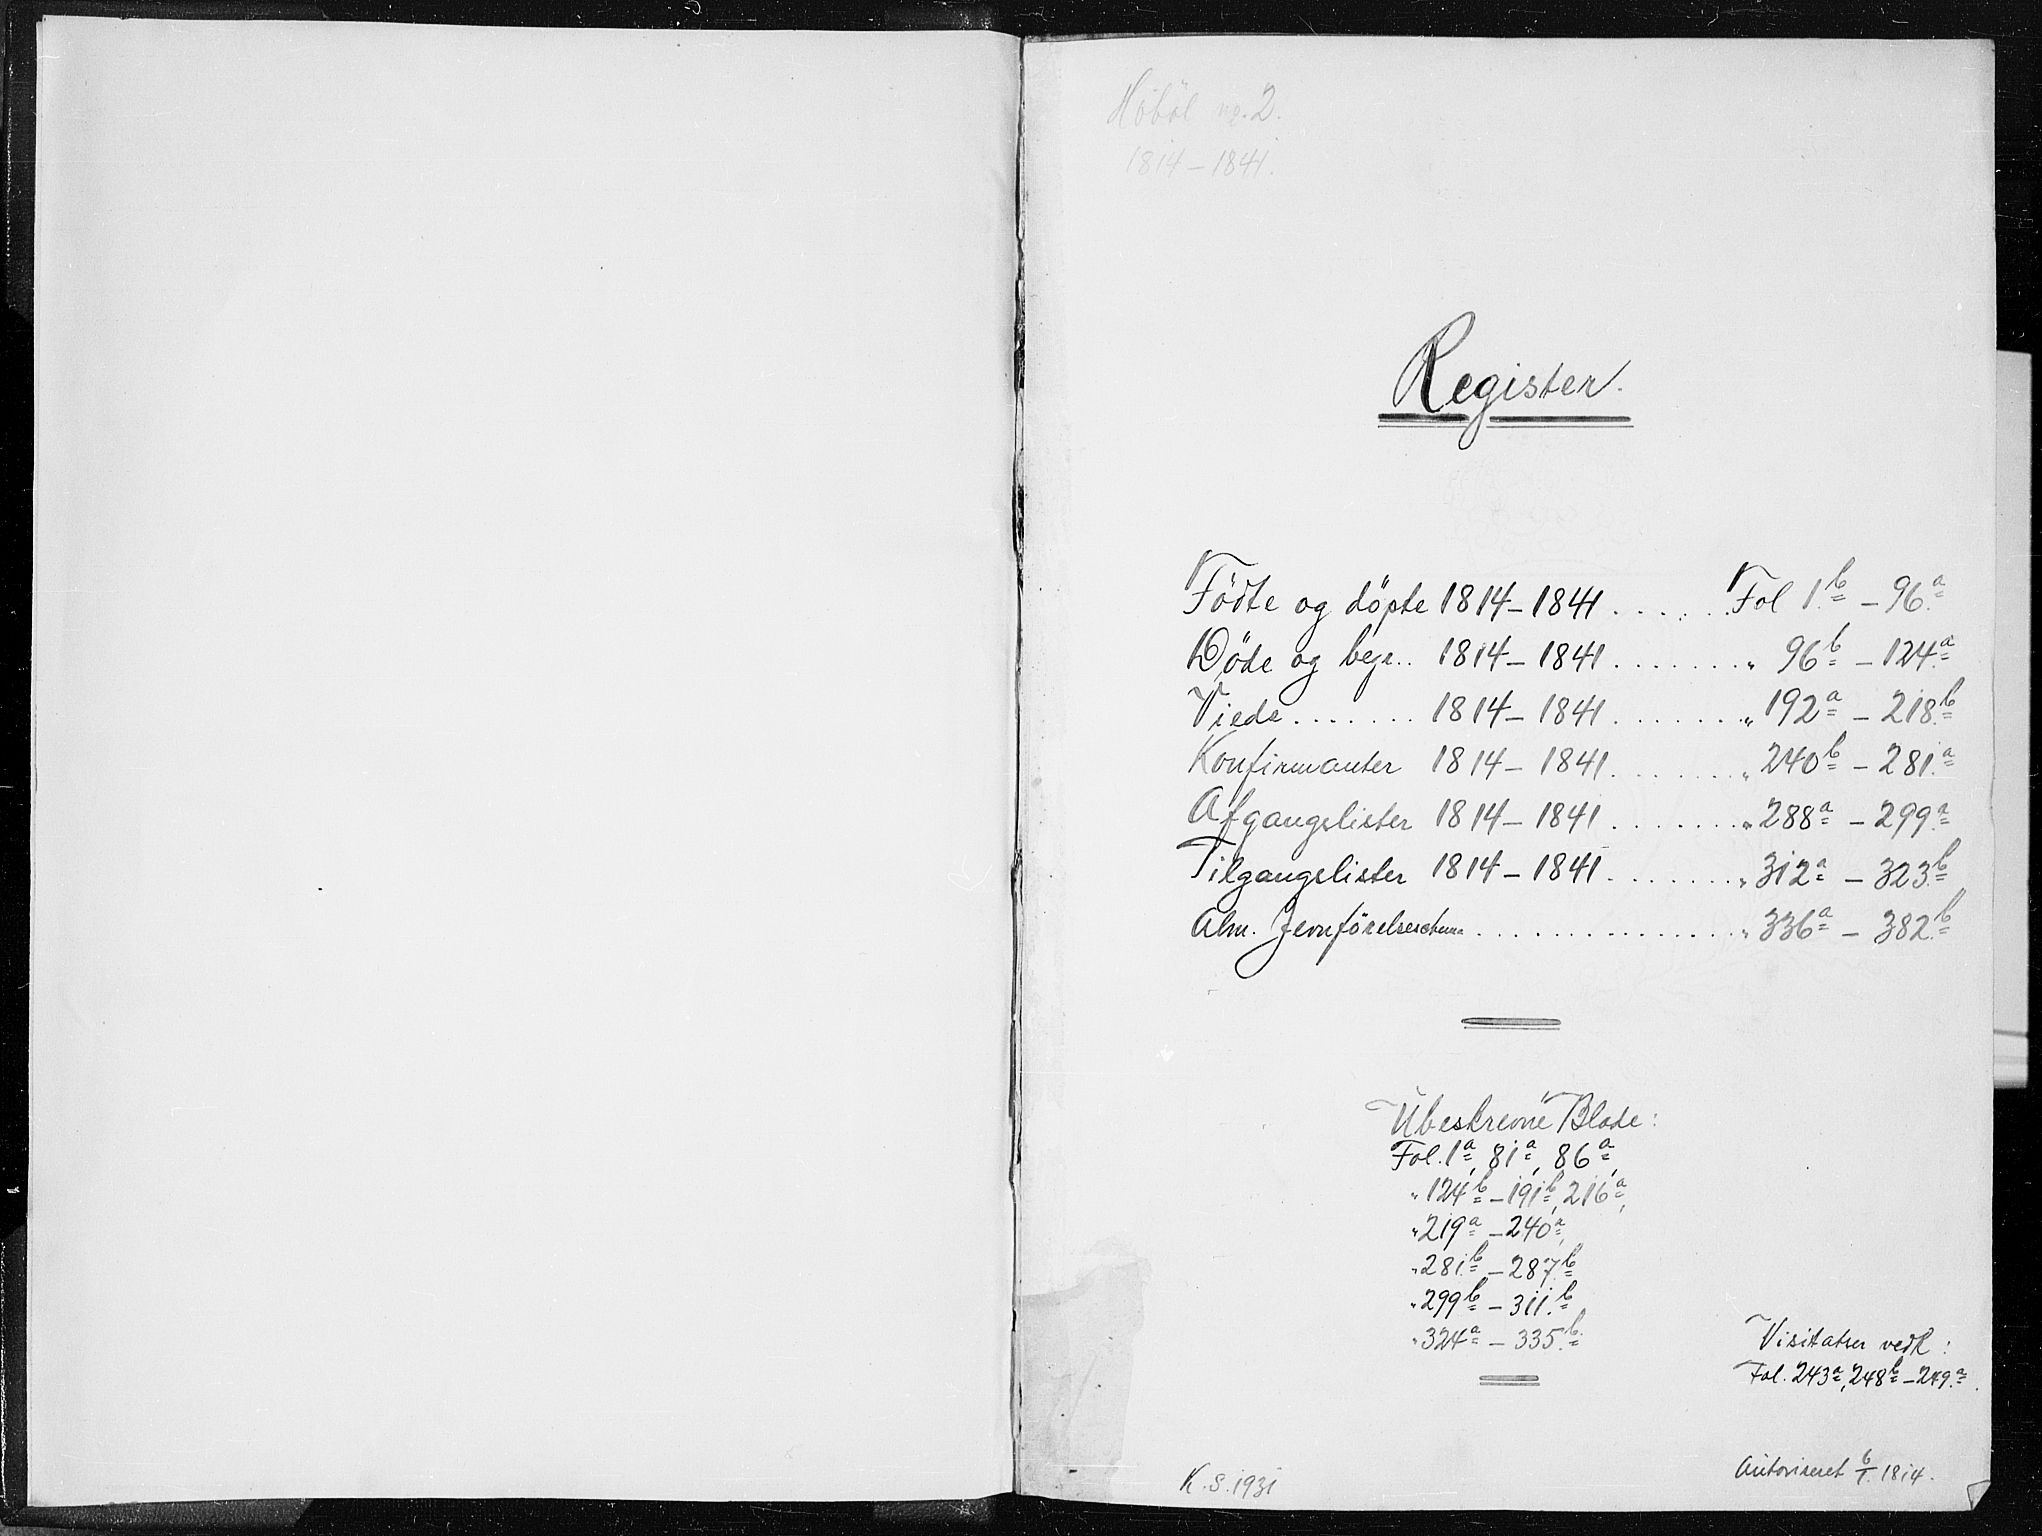 Höböl nr. 2.
1814 – 1841.
Register.
Födte og döpte 1814 – 1841 . . . . . . Fol 1.b – 96.a
Döde og begr.. 1814 – 1841 . . . . . . . „ 96b – 124.a
Viede . . . . . . . 1814 – 1841 . . . . . . . „ 192a – 218.b
Konfirmanter 1814 – 1841 . . . . . . . „ 240b – 281.a
Afgangslister 1814 – 1841 . . . . . . . „ 288a – 299.a
Tilgangslister 1814 – 1841 . . . . . . . „ 312a – 323.b
Alm. Jevnförelseschema . . . . . . . . . . . . . . „ 336a – 382.b
Ubeskrevne Blade:
Fol. 1a, 81a, 86a,
„ 124b – 191b, 216a,
„ 219a – 240a,
„ 281.b – 287.b
„ 299b – 311.b
„ 324a – 335.b
Visitatser vedk:
Fol. 243a, 248b – 249.a.
K. S. 1931
Autoriseret 6/1. 1814.